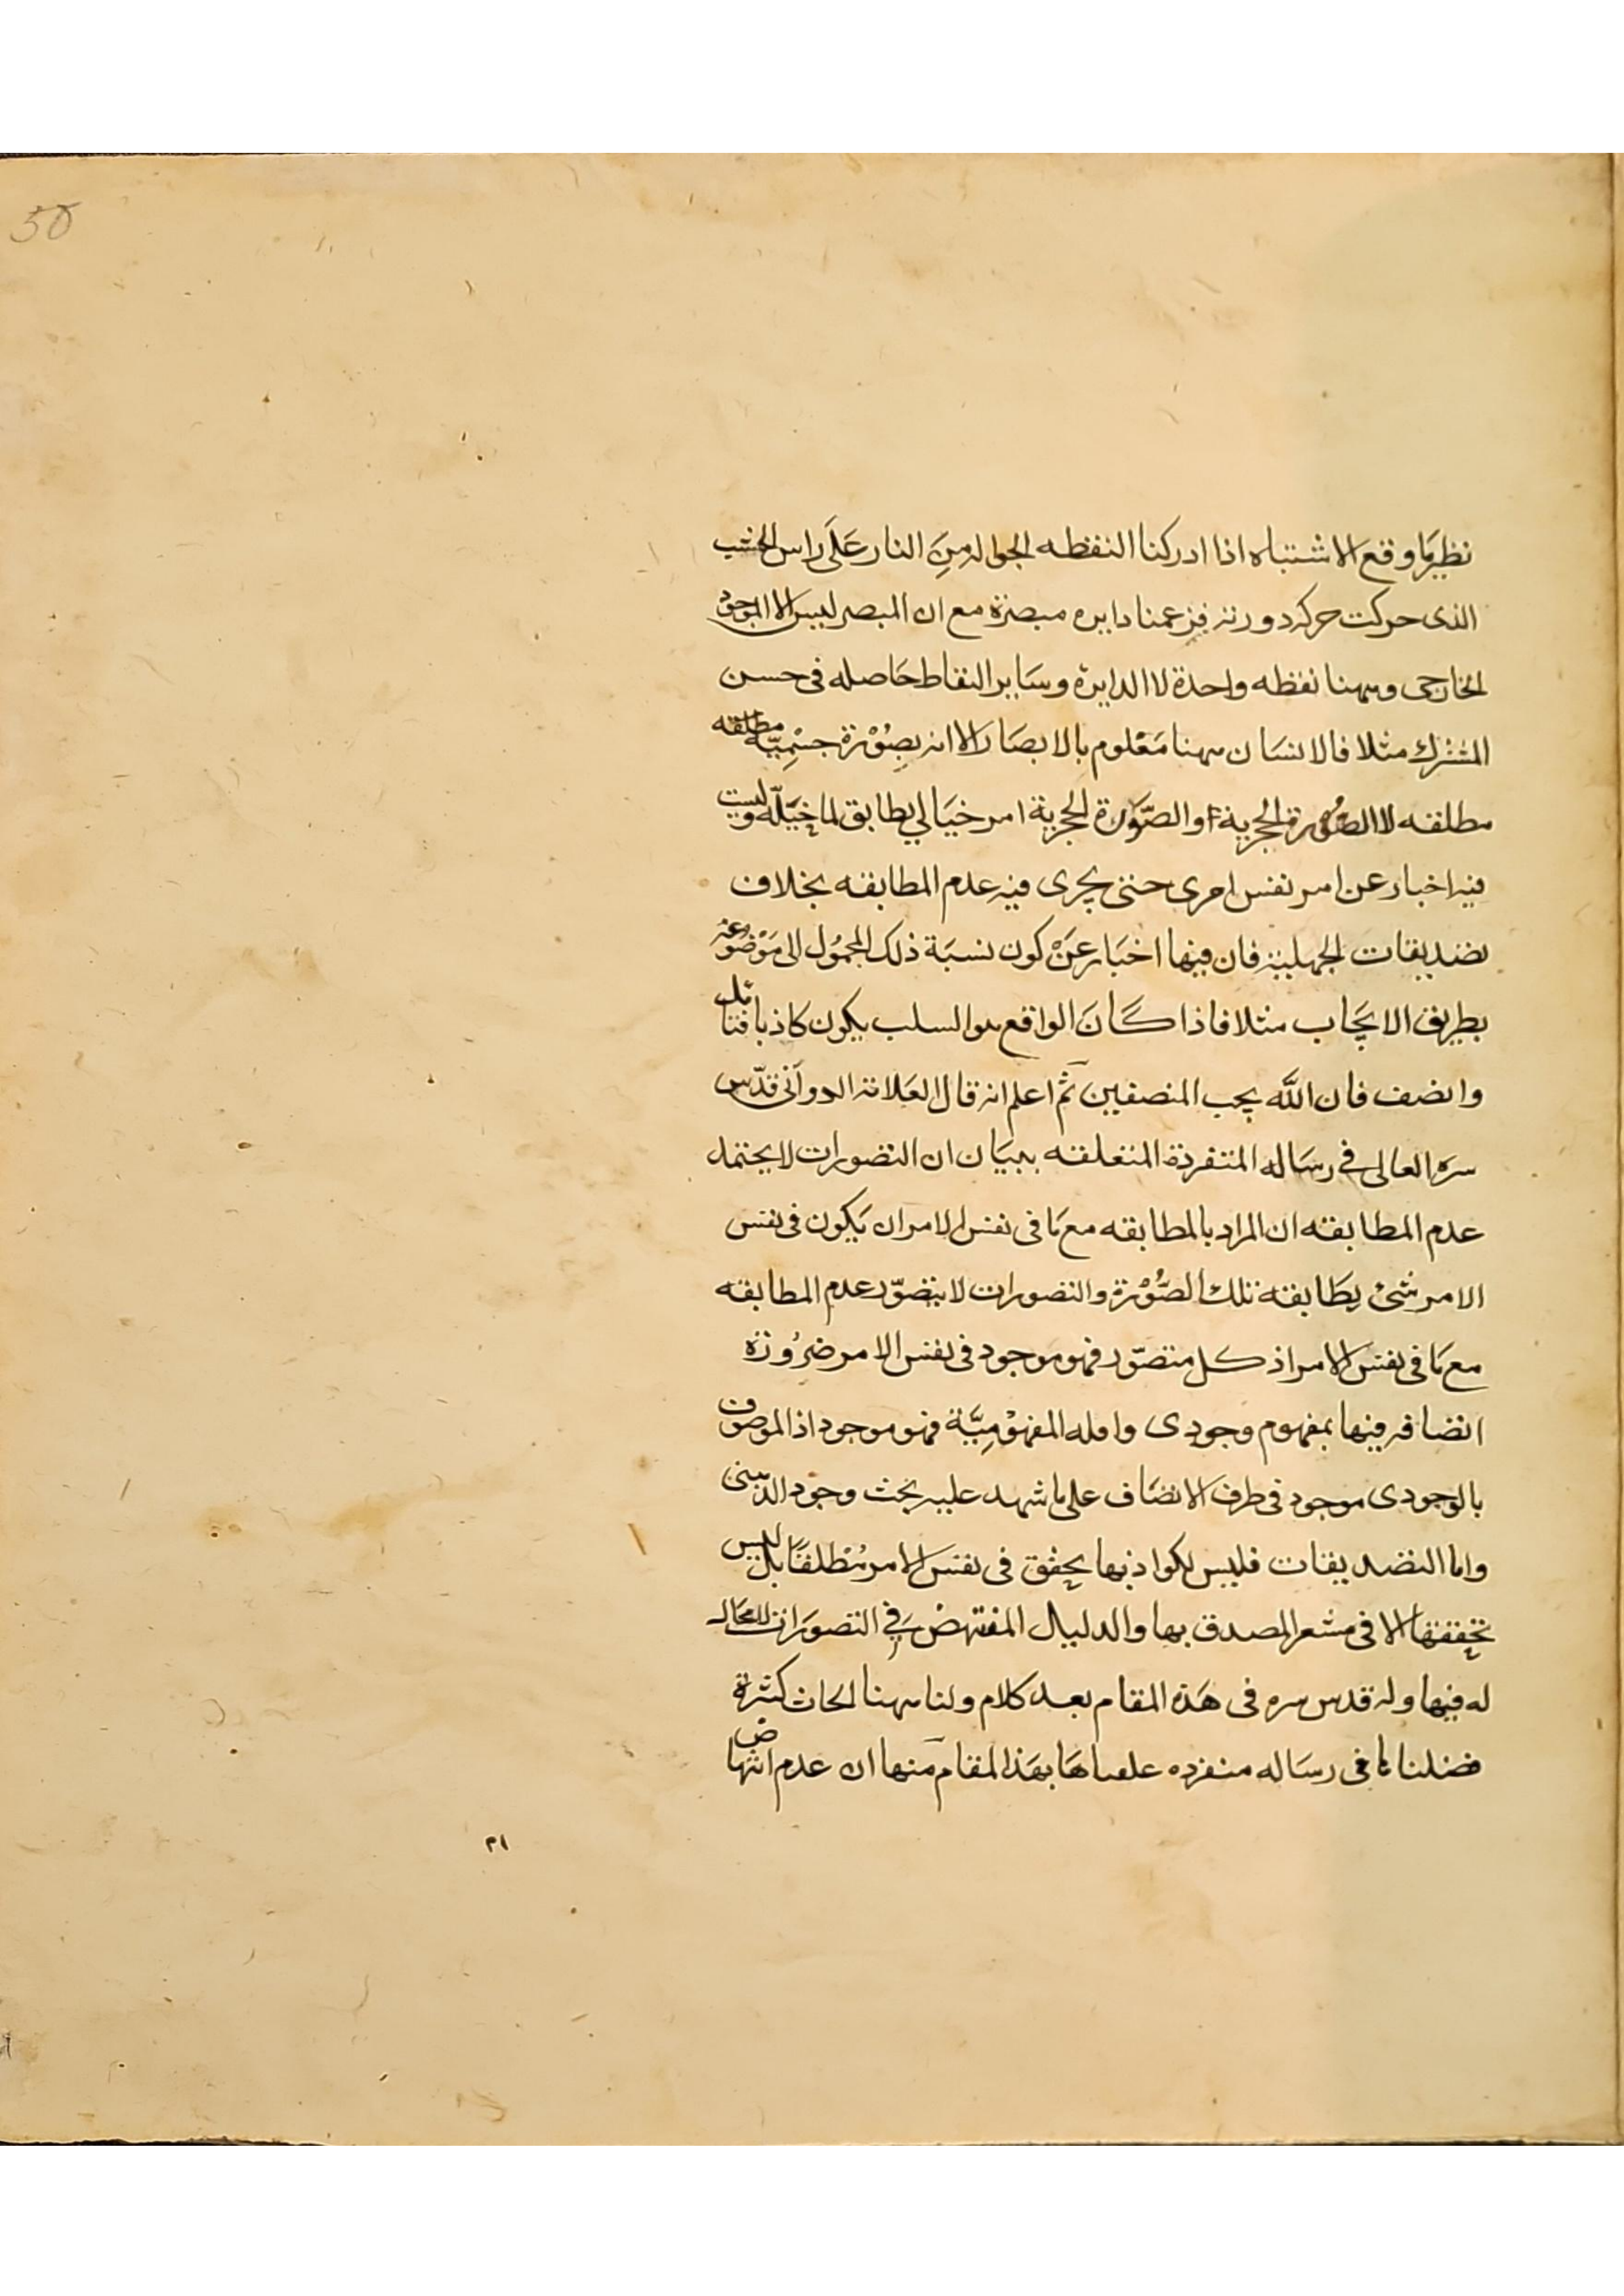 50
نظير ما وقع الاشتباه اذا ادركنا النقطه الجواله من النار على راس الخشب
الذى حركت حركه دورته فزعمنا دايره مبصرة مع ان المبصر ليس الا الموجود
الخارجى وههنا نقطه واحدة لا الدايرة وساير النقاط حاصله فى حسن
المشترك مثلا فالانسان ههنا معلوم بالابصار الا انه بصورة جسميّة مطلقه
مطلقه لا الصورة الحجرية او الصّورة الحجرية امر خيالي يطابق لما خيّله وليست
فيه اخبار عن امر نفس امرى حتى يجرى فيه عدم المطابقه بخلاف
تصديقات الجهلية فان فيها اخبار عن كون نسبة ذلك المحمول الى موضوعه
بطريق الايجاب مثلا فاذا كان الواقع هو السلب يكون كاذبا فتامل
وانصف فان الله يحب المنصفين ثم اعلم انه قال العلامة الدوانى قدّس
سره العالى في رساله المتفردة المتعلقه ببيان ان التصورات لا يحتمل
عدم المطابقه ان المراد بالمطابقه مع ما فى نفس الامر ان يكون فى نفس
الامر شئ يطابقه تلك الصُّوْرة والتصورات لا يتصوّر عدم المطابقه
مع ما فى نفس الامر اذ كل متصوّر فهو موجود فى نفس الامر ضرُورة
اتصافه فيها بمفهوم وجودى واقله المفهوْمِيَّة فهو موجود اذ الموصوف
بالوجودى موجود فى طرف الاتصاف على ما شهد عليه بحث وجود الذهنى
واما التصديقات فليس لكواذبها تحقق فى نفس الامر مُطلقًا بل ليس
تحققها الا فى مشعر المصدق بها والدليل المنتهض في التصورات لا مجال
له فيها وله قدس سره فى هذه المقام بعد كلام ولنا ههنا ابحاث كثيرة
فضلناها فى رساله منفرده علقناها بهذا المقام منها ان عدم انتهاض
٣١